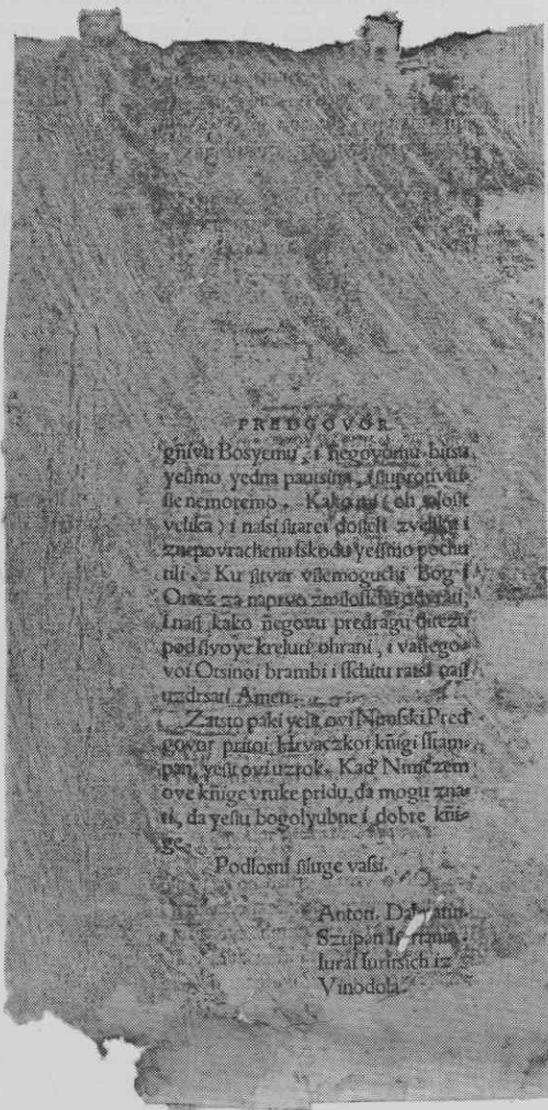 PREDGOVOR
gñivu Bosyemu, i ñegovomu bitsu
yeſſmo yedna pautsina, i ſſuprotiviti
ſſe nemoremo. Kako mi (oh
velika) i naſſi ſſtarei doſſeli zveliku i
znepovrachenu ſſkodu yeſſmo pochu
tili. Ku ſſtvar vſſemoguchi Bog i
Otacz za naprvo zmiloſſchu odvrati,
i naſſ, kako ñegovu predragu
pod ſſvoye kreluti ohrani, i
voi Otsinoi brambi i ſſchitu raſſi naſſ
uzdrsati Amen.
Zatſto paki yeſt ovi Nimſki Pred
govor pritoi Hrvaczkoi kñigi ſſtam-
pan, yeſt ovi uzrok. Kad Nimczem
ove kñige vruke pridu, da mogu zna-
ti, da yeſſu bogolyubne i dobre kñi-
ge.
Podloſni ſſluge vaſſi.
Anton. Dalmatin.
Sztipan Iſtrianin.
Iuraſ Iuriſich iz
Vinodola.